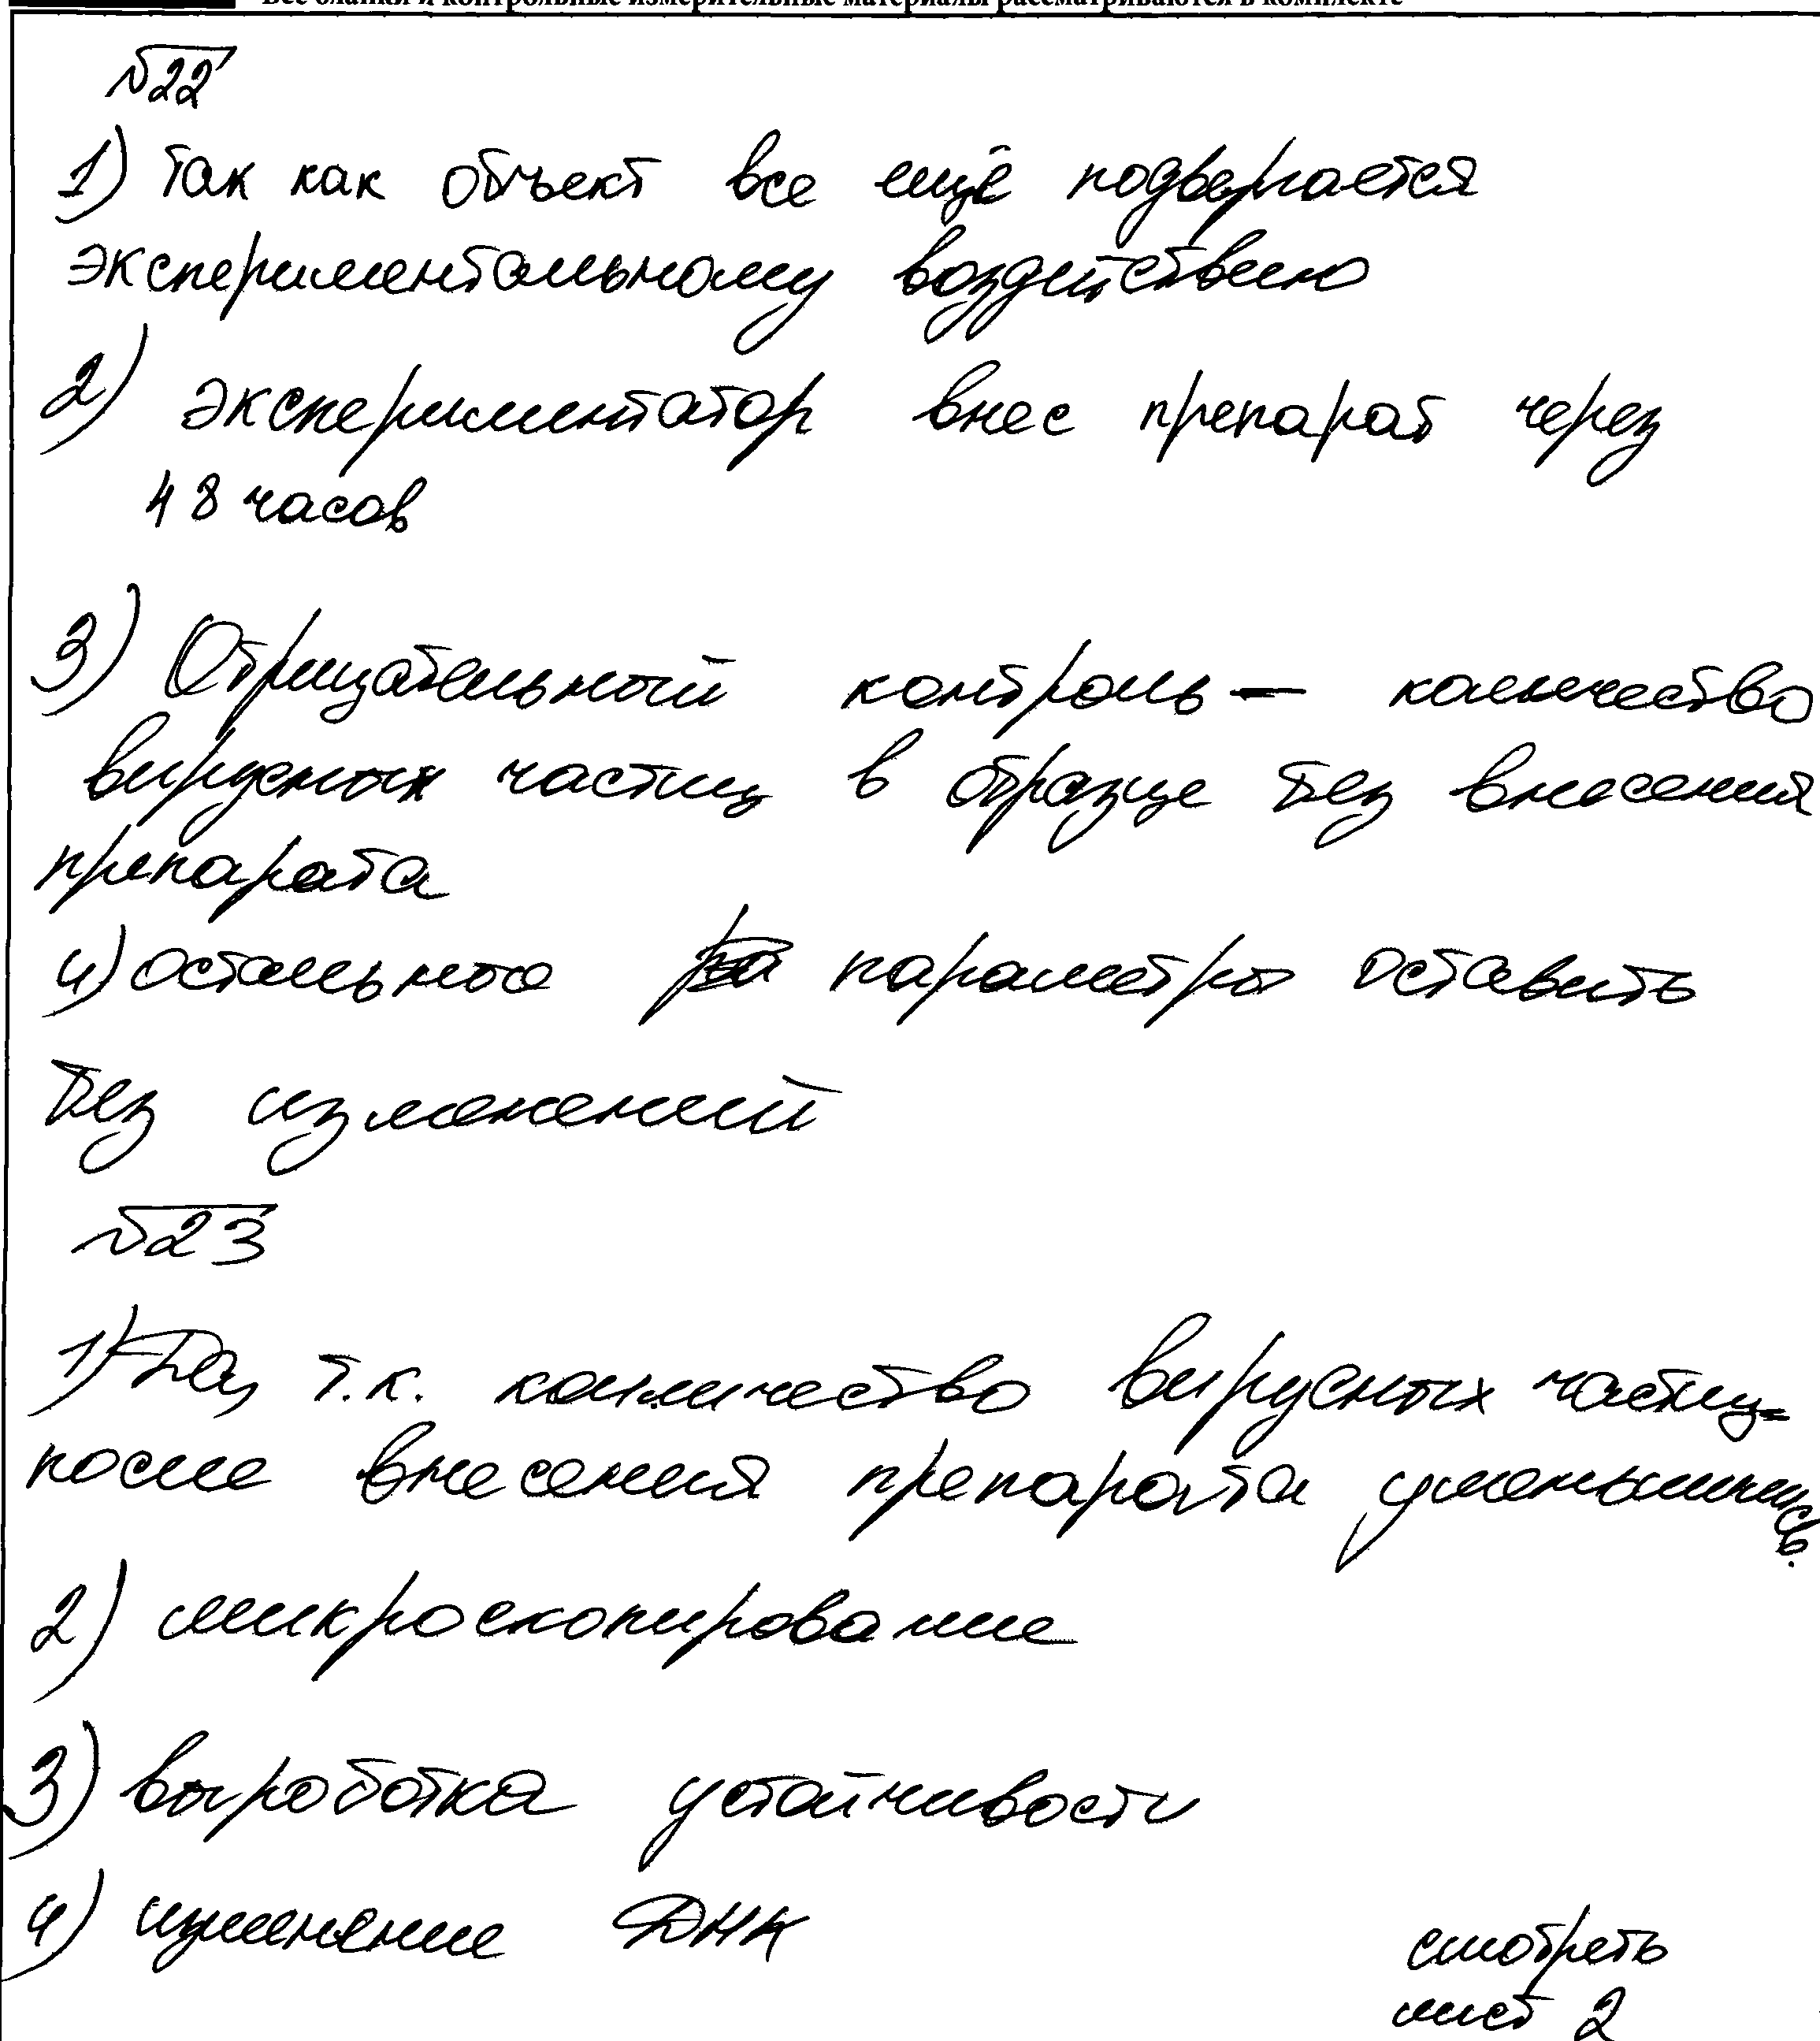 Все бланки и контрольные измерительные материалы рассматриваются в комплекте
№22
1) так как объект все ещё подвергается
экспериментальному воздействию
2) экспериментатор внес препарат через
48 часов
3) Отрицательный контроль – количество
вирусных частиц в образце без внесения
препарата
4) остальные параметры оставить
без изменений
№23
1) Да, т.к. количество вирусных частиц
после внесения препарата уменьшились.
2) микроскопирование
3) выроботка устойчивости
4) изменение ДНК
смотреть
лист 2